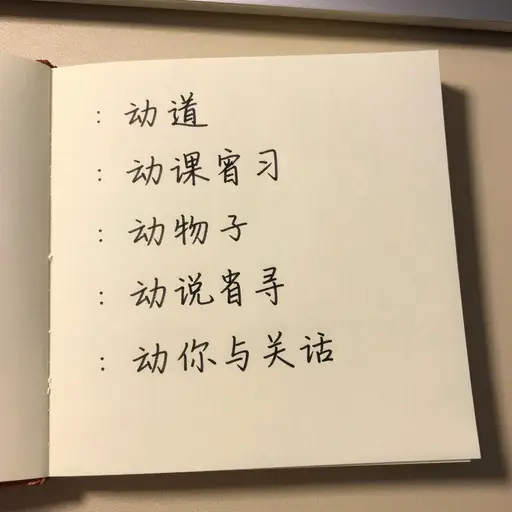 : 动道
: 动课宵习
: 动物子
: 动说省寻
: 动你与关话